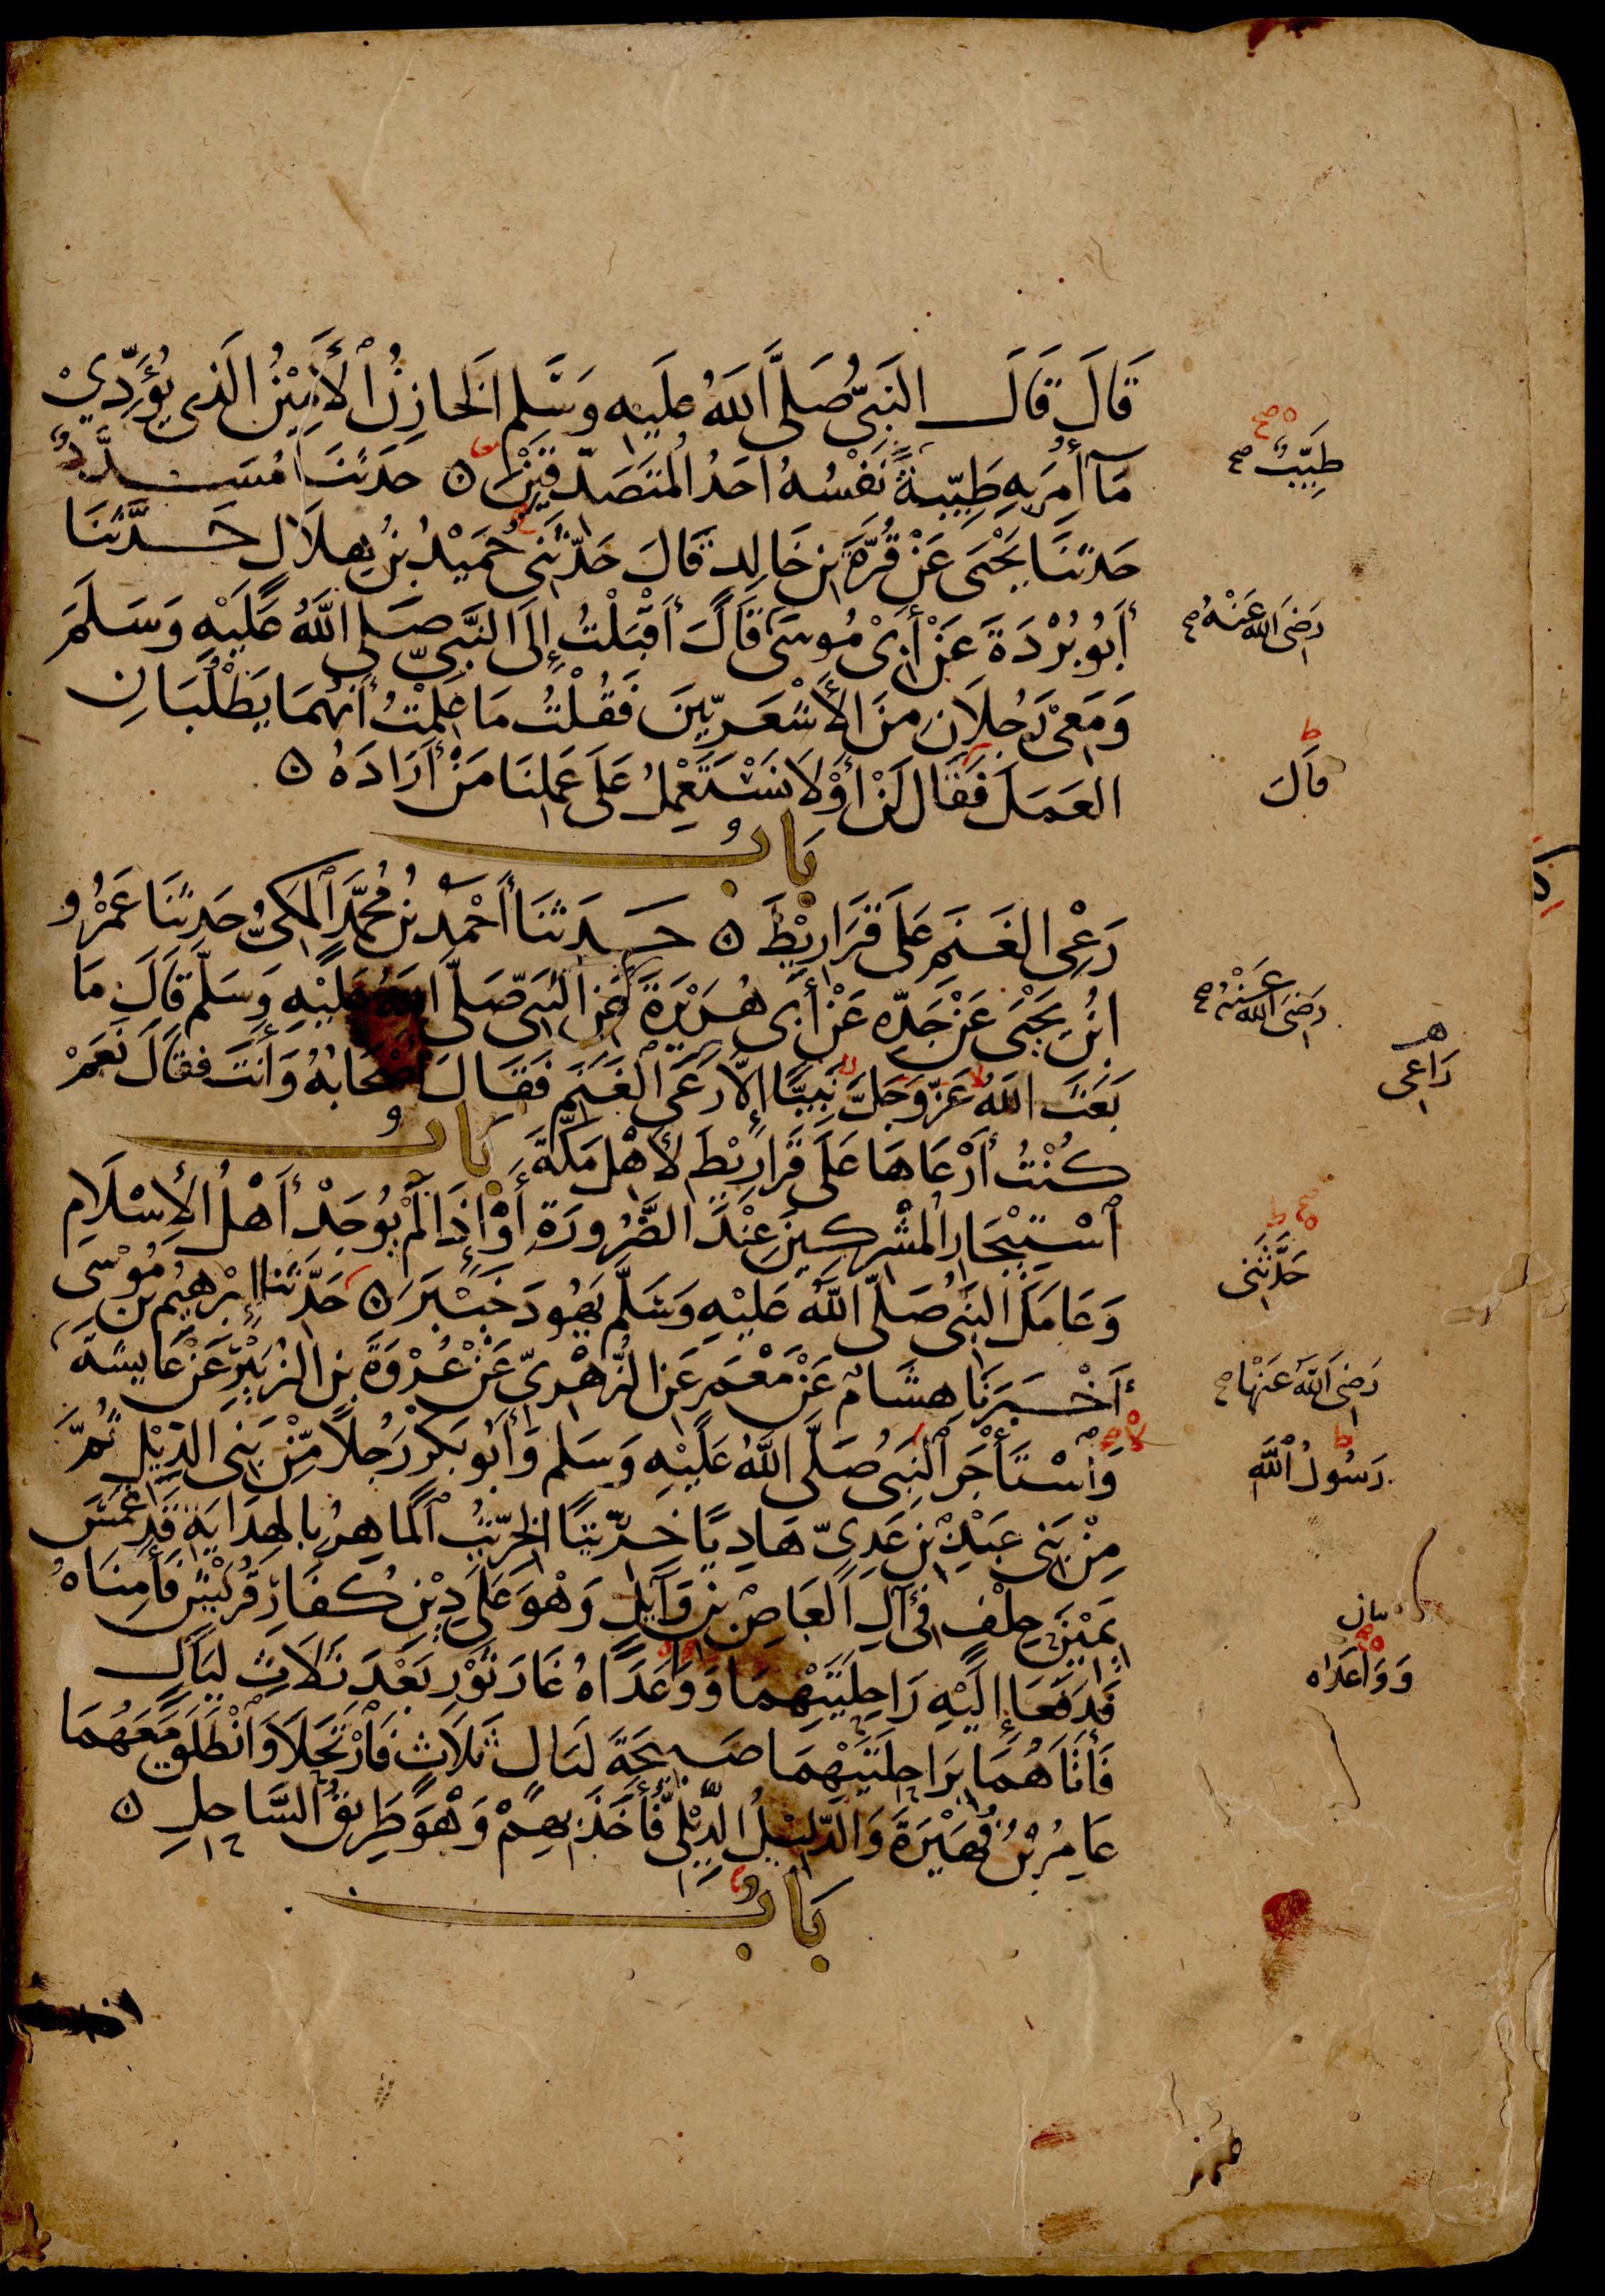 قَالَ قَالَ النَّبِيُّ صَلَّى اللَّهُ عَلَيْهِ وَسَلَّم الخَازِنُ ٱلْأَمِيْنُ الَّذى يُؤَدِّيْ
مَآ أُمِرَ بِهِ طَيِّبةً نَفْسُهُ أحَدُ الْمُتَصَدِّقِيْنَ ۵ حَدثَنَا مُسَدَّدٌ
حَدثَنَا يَحْيَى عَنْ قُرَّةَ بنِ خَالِد قَالَ حَدَّثَنِى حُمَيْدُ بْنُ هِلَال حَدَّثَنَا
أَبُو بُرْدَةَ عَنْ أَبِىْ مُوسَى قَالَ أَقْبَلْتُ إِلَى النَّبِيِّ صَلى اللَّهُ عَلَيْهِ وَسَلَّمَ
وَمَعِىْ رَجُلَانِ مِنَ الْأَشْعَرِيّينَ فَقُلْتُ مَا عَلِمْتُ أَنَّهُمَا يَطْلُبَانِ
العَمَلَ فَقَالَ لَنْ أَوْ لَا نَسْتَعْمِلُ عَلَى عَمَلِنَا مَنْ أَرَادَهُ ۵
بَابُ
رَعْىِ الغَنَمِ عَلَى قَرَارِيْطَ ۵ حَدثَنَا أَحْمَدُ بنُ مُحَمَّدٍ ٱلْمَكِىُّ حَدثَنَا عَمْرُو
ابْنُ يَحْيَى عَنْ جَدِّهِ عَنْ أَبِى هُرَيْرَةَ عَنِ النَّبِىِّ صَلَّى اللَّهُ عَلَيْهِ وَسَلَّم قَالَ مَا
بَعَثَ اللَّهُ عَزَّ وَجَلَّ نَبِيًّا إِلَّا رَعَى الْغَنَمَ فَقَالَ أَصْحَابُهُ وَأَنْتَ فَقَالَ نَعَمْ
كُنْتُ أَرْعَاهَا عَلَى قَرَارِيْطَ لِأَهْلِ مَكَّةَ بَابُ
ٱسْتِيْجَارِ الْمُشْرِكِينَ عِنْدَ الضَّرُورَةِ أَوْ إِذَا لَمْ يُوجَدْ أَهْلُ الْإِسْلَامِ
وَعَامَلَ النَّبِىُّ صَلَّى اللَّهُ عَلَيْهِ وَسَلَّم يَهُودَ خَيْبَرَ ۵ حَدَّثَنَا إِبْرَهِيمُ بن مُوْسَى
أَخْبَرَنَا هِشَامٌ عَنْ مَعْمَرٍ عَنِ الزُّهْرِيِّ عَنْ عُرْوَةَ بنِ الزُّبَيْرِ عَنْ عَايِشَةَ
وَٱسْتَأْجَرَ ٱلنَّبِىُّ صَلَّى اللَّهُ عَلَيْهِ وَسَلم وَأَبُو بَكْر رَجُلًا مِّنْ بَنِى الدِّيْلِ ثُمَّ
مِنْ بَنِى عَبْدِ بْنِ عَدِىّ هَادِيًا خِرِّيتًا الخِرِّيْتُ ٱلْمَاهِرُ بِالهِدَايَةِ قَدْ غَمَسَ
يَمِيْنَ حِلْفٍ فِى آلِ الْعَاصِ بْنِ وَآيِلٍ وَهْوَ عَلَى دِيْنِ كُفَّارِ قُرَيْشٍ فَأَمِنَاهُ
فَدَفَعَا إِلَيْهِ رَاحِلَتَيْهِمَا وَوَعَدَاهُ غَارَ ثَوْرٍ بَعْدَ ثَلَاثِ لَيَالٍ
فَأَتَاهُمَا بِرَاحِلَتَيْهِمَا صَبِيحَةَ لَيَالٍ ثَلَاثٍ فَٱرْتَحَلَا وَٱنْطَلَقَ مَعَهُمَا
عَامِرُ بْنُ فُهَيْرَةَ وَالدَّلِيْلُ الدِّيْلِىُّ فَأَخَذَ بِهِمْ وَهْوَ طَرِيقُ السَّاحِلِ ۵
بَابُ
طَيِّبٌ صح
رَضِىَ اللهُ عَنْهُ صح
قَالَ
رَضِىَ اللهُ عَنْهُ صح
رَاعِى
حَدَّثَنِى
رَضِىَ اللَّهُ عَنْهَا صح
رَسُولُ ٱللَّهِ
وَوَاعَدَاه